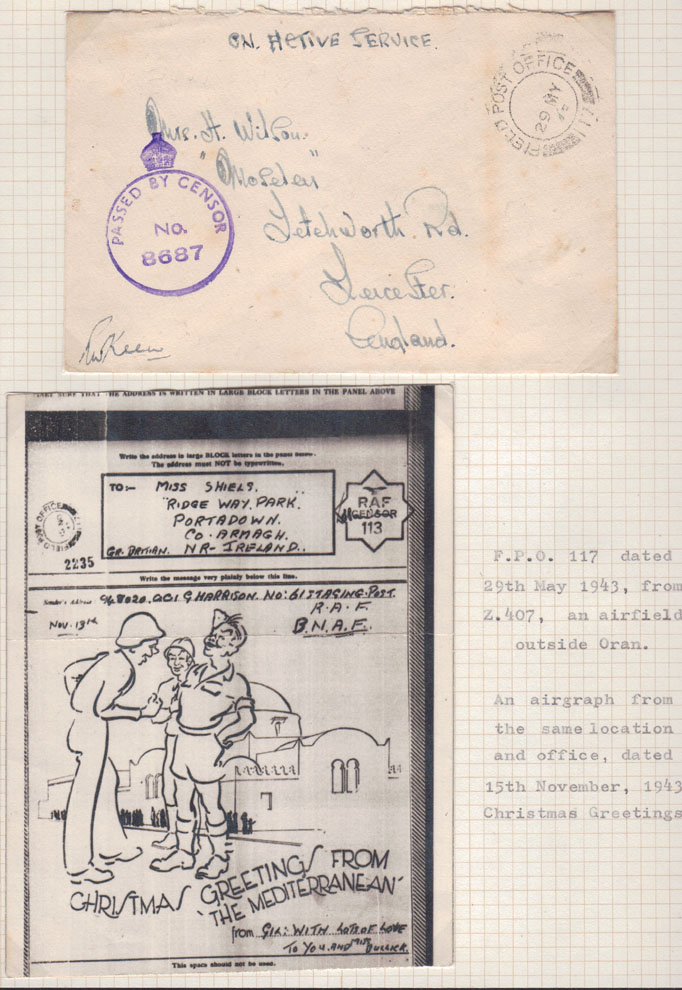 ON. ACTIVE SERVICE.
FIELD POST OFFICE
29 MY
43
117
Mrs. H. Wilson.
"Moseley"
Letchworth. Rd.
Leicester.
England.
PASSED BY CENSOR
No.
8687
THE ADDRESS IS WRITTEN IN LARGE BLOCK LETTERS IN THE PANEL ABOVE
Write the address in large BLOCK letters in the panel below.
The address must NOT be typewritten.
TO:- MISS SHIELS.
"RIDGE WAY. PARK.
PORTADOWN.
CO. ARMAGH.
GR. BRITIAN. NR- IRELAND..
RAF
CENSOR
113
FIELD POST OFFICE
2235
Write the message very plainly below this line.
Sender's Address
G HARRISON. NO: 61 STAGING. POST.
R.A.F
B.N.A.F.
NOV. 13th
CHRISTMAS GREETINGS FROM
'THE MEDITERRANEAN'
from GIL: WITH LOTS OF LOVE
TO YOU. AND MISS BULLICK.
This space should not be used.
F.P.O. 117 dated
29th May 1943, from
Z.407, an airfield
outside Oran.
An airgraph from
the same location
and office, dated
15th November, 1943
Christmas Greetings